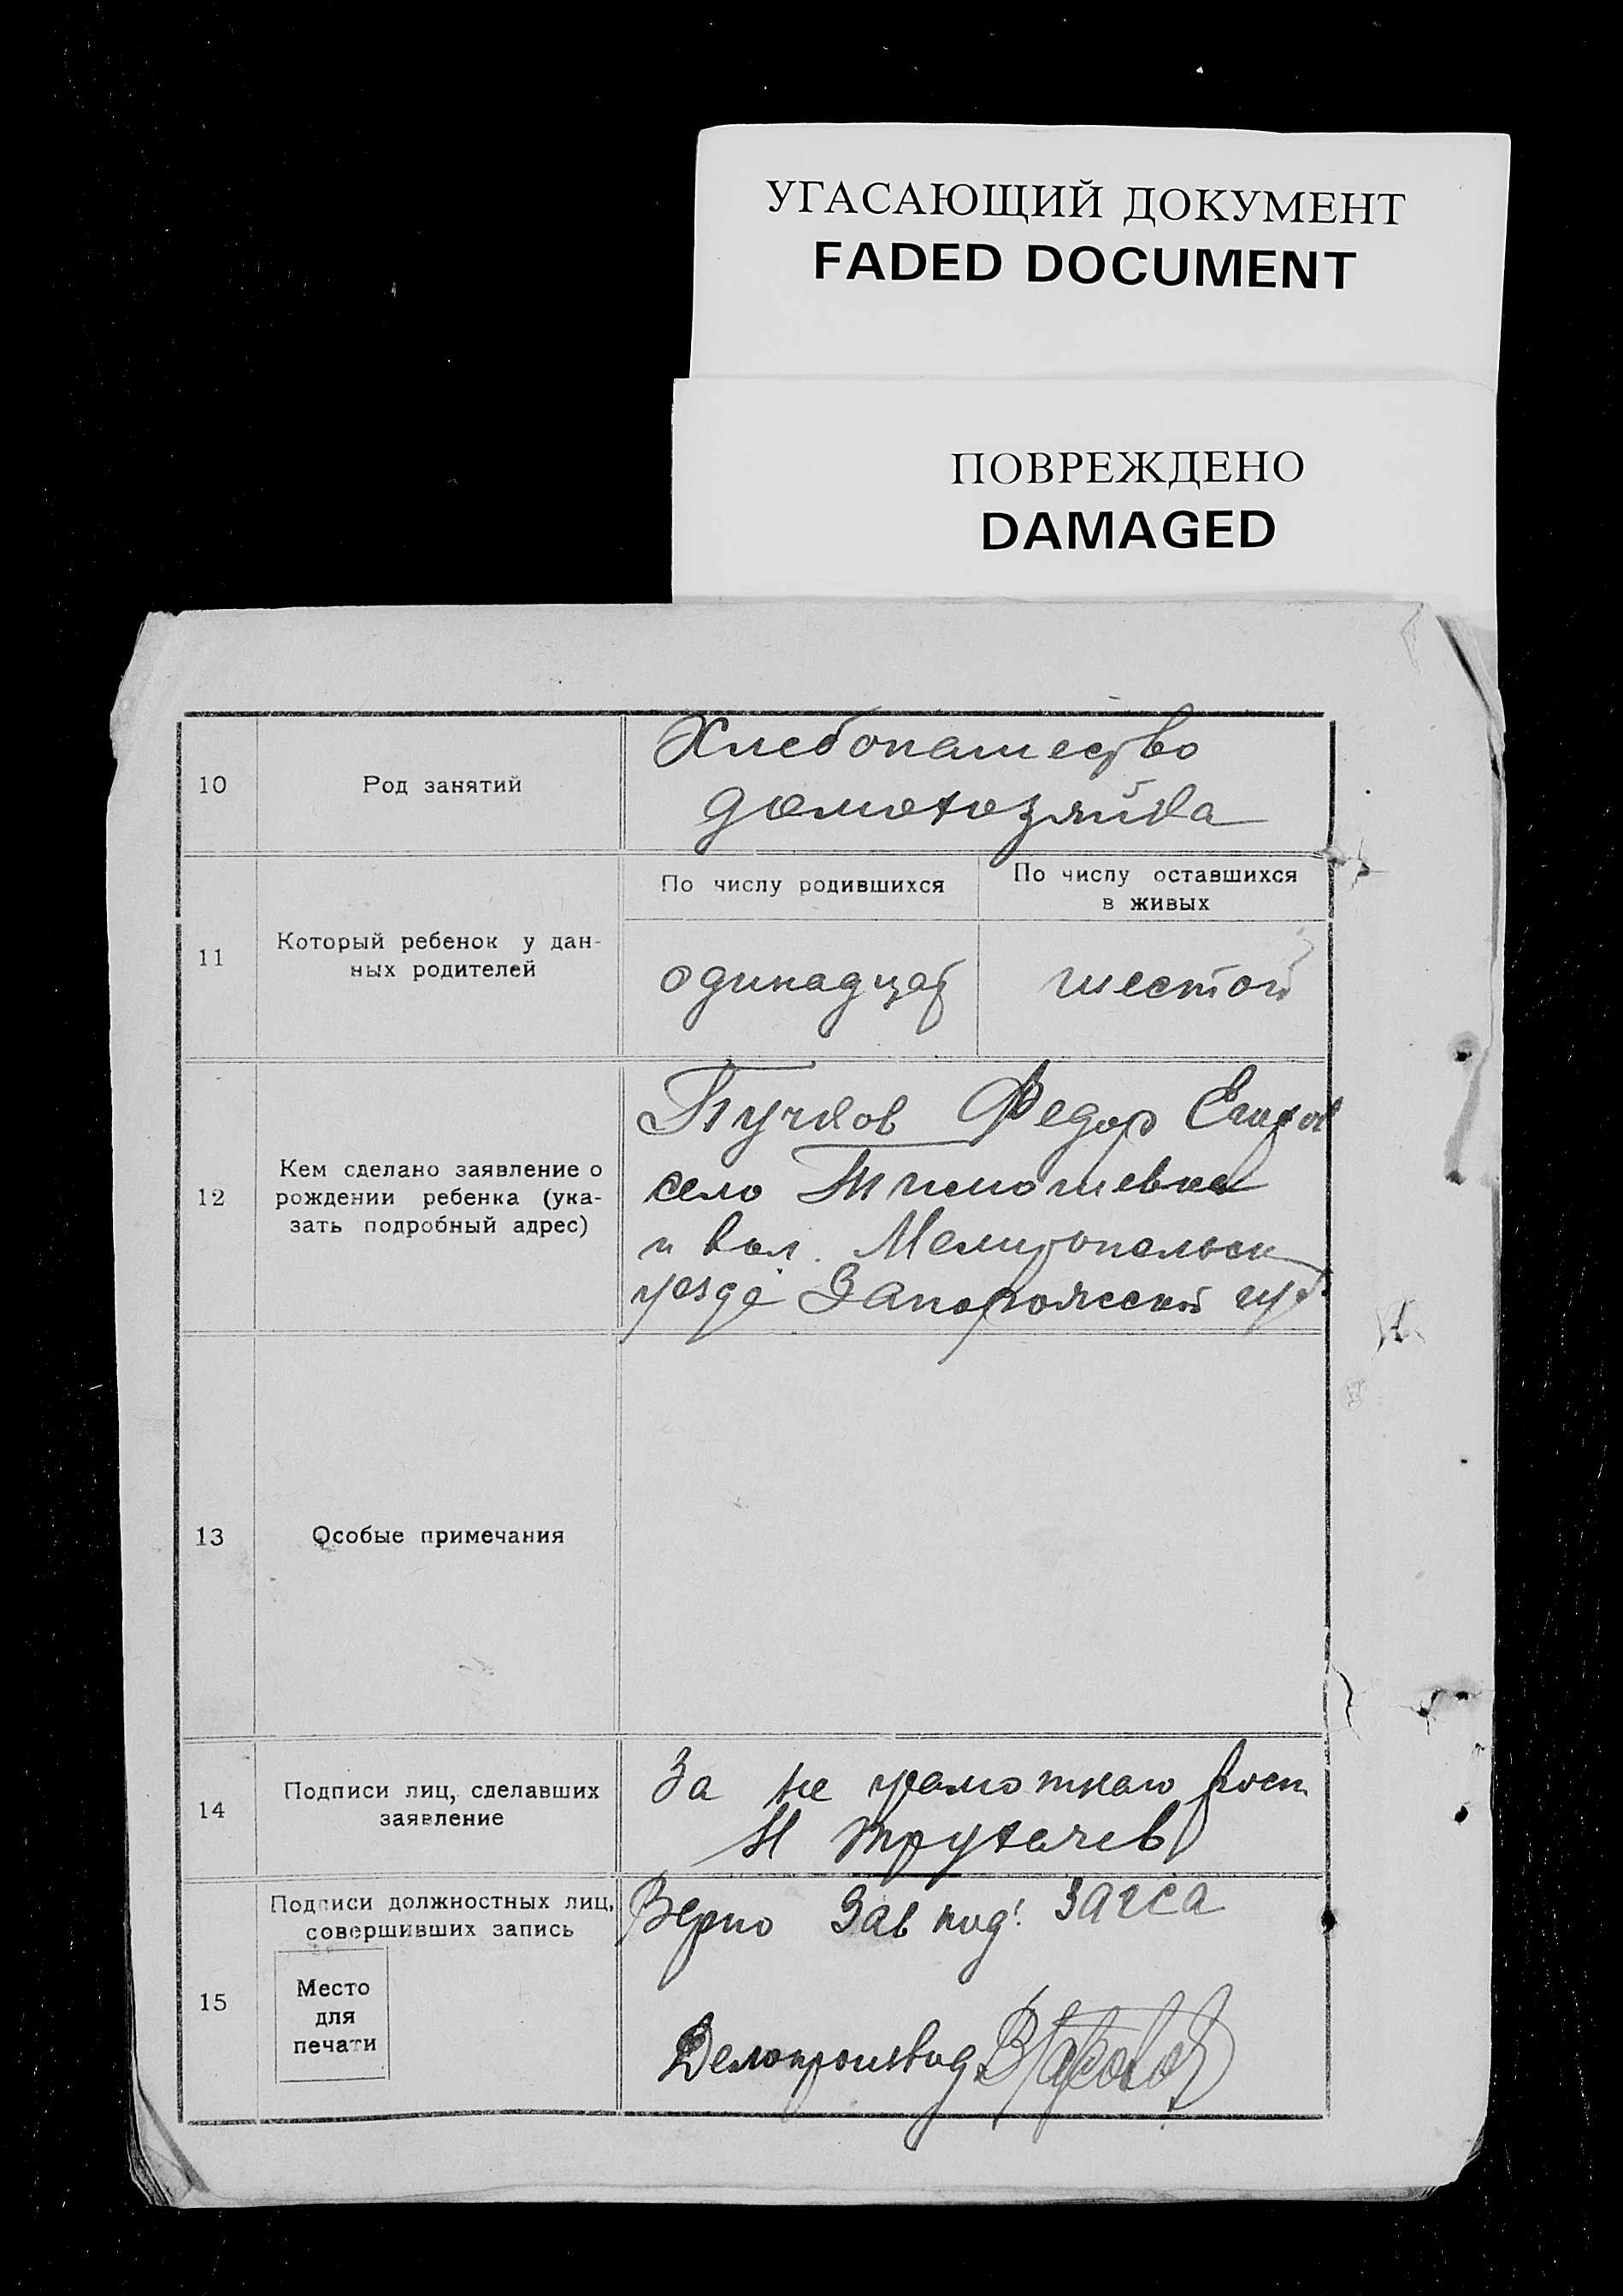 УГАСАЮЩИЙ ДОКУМЕНТ
FADED DOCUMENT
ПОВРЕЖДЕНО
DAMAGED
10
Род занятий
Хлебопашество
домохозяйка
11
Который ребенок у дан-
ных родителей
По числу родившихся
По числу оставшихся
в живых
одинадцат
шестой
12
Кем сделано заявление о
рождении ребенка (ука-
зать подробный адрес)
Пучков Федор
село Тимошевка
и вол. Мелитопольск
уезда Запорожской губ
13
Особые примечания
14
Подписи лиц, сделавших
заявление
За не грамотнаго росп
Н Трухачев
15
Подписи должностных лиц,
совершивших запись
Место
для
печати
Верно Зав под. Загса
Делопроизвод